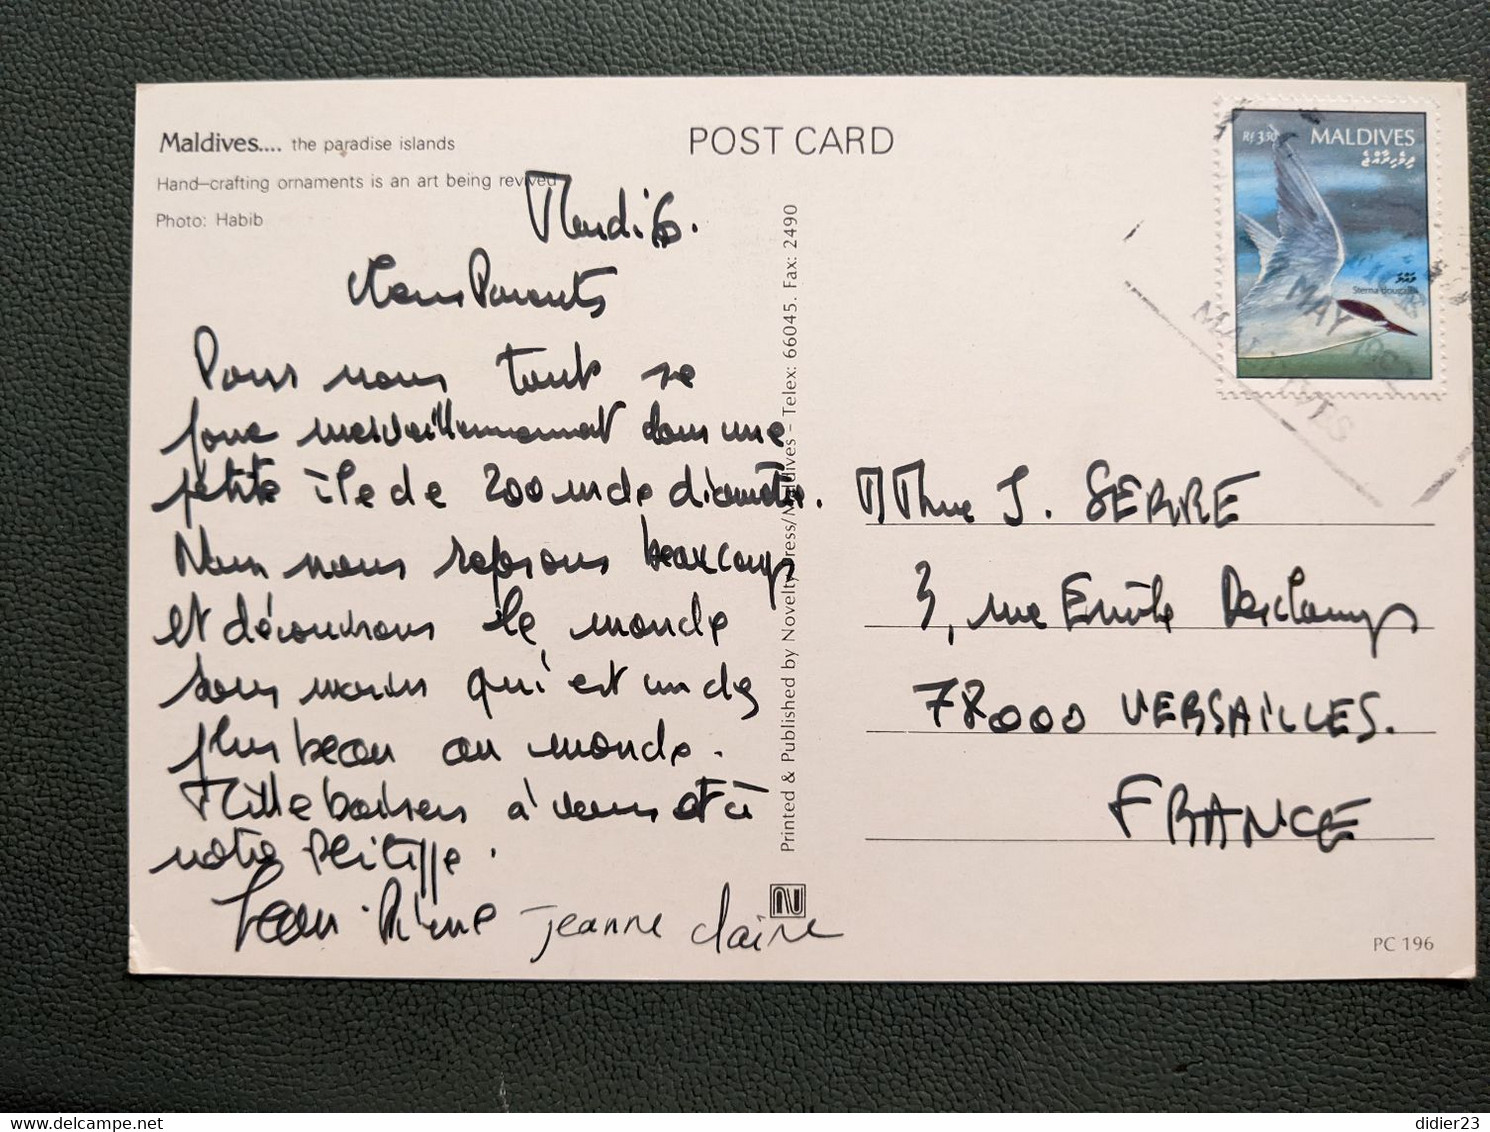 Maldives.... the paradise islands
Hand-crafting ornaments is an art being revived
Photo: Habib
POST CARD
Rf 3.50 MALDIVES
ދިވެހިރާއްޖެ
Sterna dougallii
MAY
MALDIVES
Mardi 6.
Chers Parents
Pour nous tout se
passe merveilleusement dans une
petite île de 200 m de diamètre.
Nous nous reposons beaucoup
et découvrons le monde
sous marin qui est un des
plus beau au monde.
Mille baisers à vous et à
notre Philippe.
Jean-Pierre jeanne claire
Printed & Published by Novelty Press/Maldives - Telex: 66045. Fax: 2490
M Mme J. SERRE
3, rue Emile Deschamps
78000 VERSAILLES.
FRANCE
PC 196
didier23